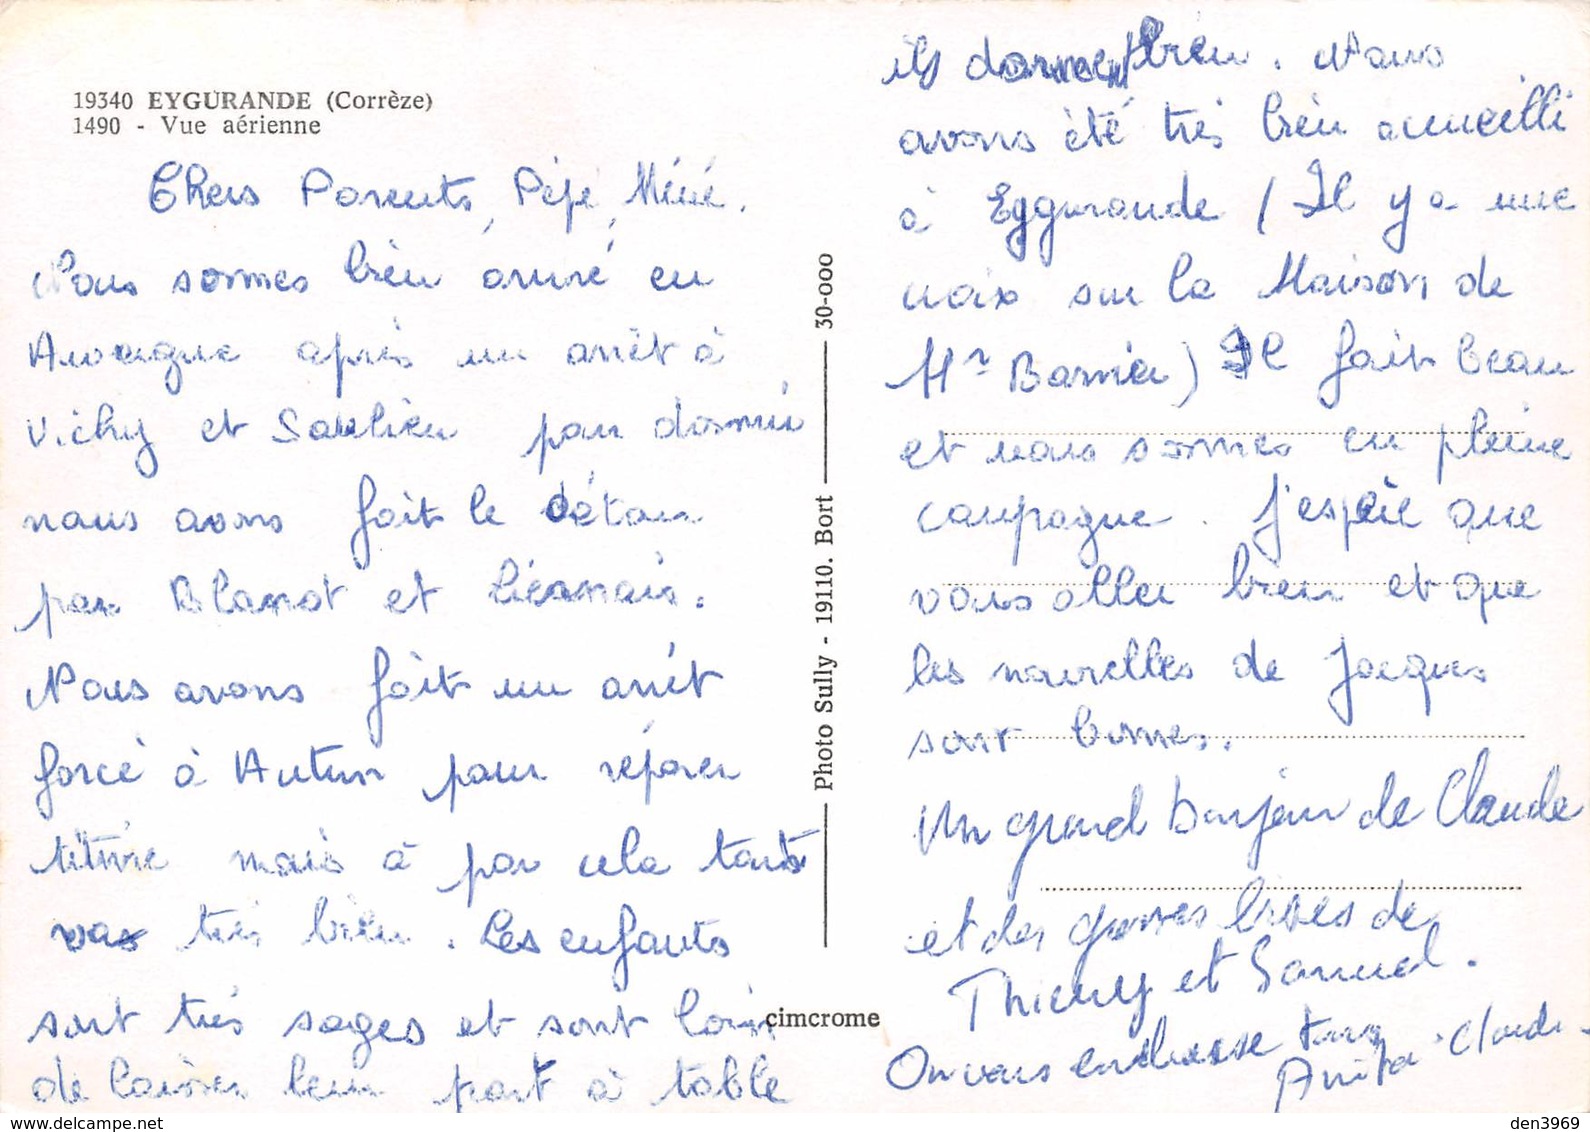 19340 EYGURANDE (Corrèze)
1490 - Vue aérienne
Chers Parents, Pépé, Mémé.
Nous sommes bien arrivé en
Auvergne après un arrêt à
Vichy et Saulieu pour dormir
nous avons fait le détour
par Blanot et Liernais.
Nous avons fait un arrêt
forcé à Autun pour réparer
mais à par cela tout
vas très bien. Les enfants
sont très sages et sont loin
de laisser leur part à table
Photo Sully - 19110. Bort 30-000
cimcrome
ils dorment bien. Nous
avons été très bien acueilli
à Eygurande (Il y a une
croix sur la Maison de
Mr Barrier) Il fait beau
et nous sommes en pleine
campagne. J'espère que
vous aller bien et que
les nouvelles de Jacques
sont bonnes.
Un grand bonjour de Claude
et des grosses bises de
Thierry et Samuel.
On vous embrasse tous
Anita. Claude
den3969